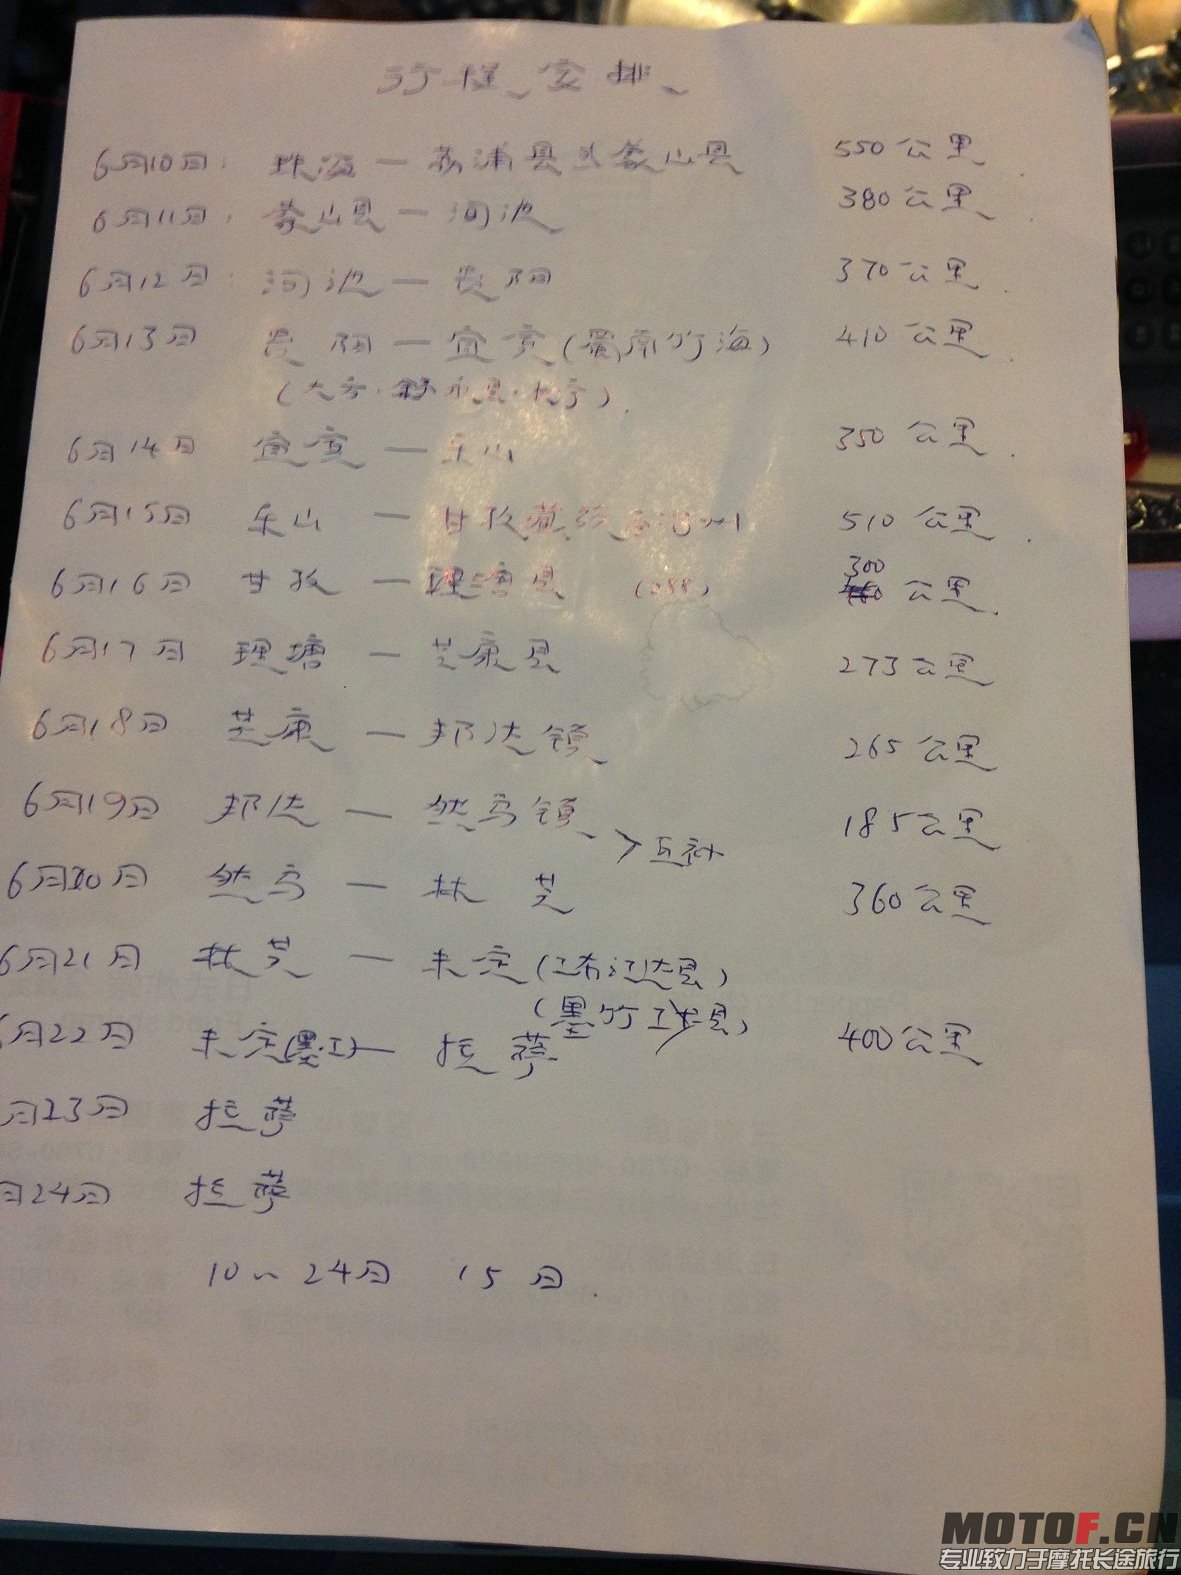 行程安排
6月10日: 珠海—荔浦县或蒙山县 550公里
6月11日: 蒙山县—河池 380公里.
6月12日: 河池—贵阳 370公里.
6月13日 贵阳—宜宾(蜀南竹海) 410公里.
(大方. 叙永县. 长宁).
6月14日 宜宾—乐山 350公里.
6月15日 乐山—甘孜藏族自治州 510公里.
300
6月16日 甘孜—理塘县 (288) 公里.
6月17日 理塘—芝康县 273公里
6月18日 芝康—邦达镇 265公里
6月19日 邦达—然乌镇 185公里
>互补
6月20日 然乌—林芝 360公里
6月21日 林芝—未定(工布江达县)
(墨竹工卡县)
6月22日 未定(墨工)—拉萨 400公里
月23日 拉萨
月24日 拉萨
10~24日 15日.
MOTOF.CN
专业致力于摩托长途旅行